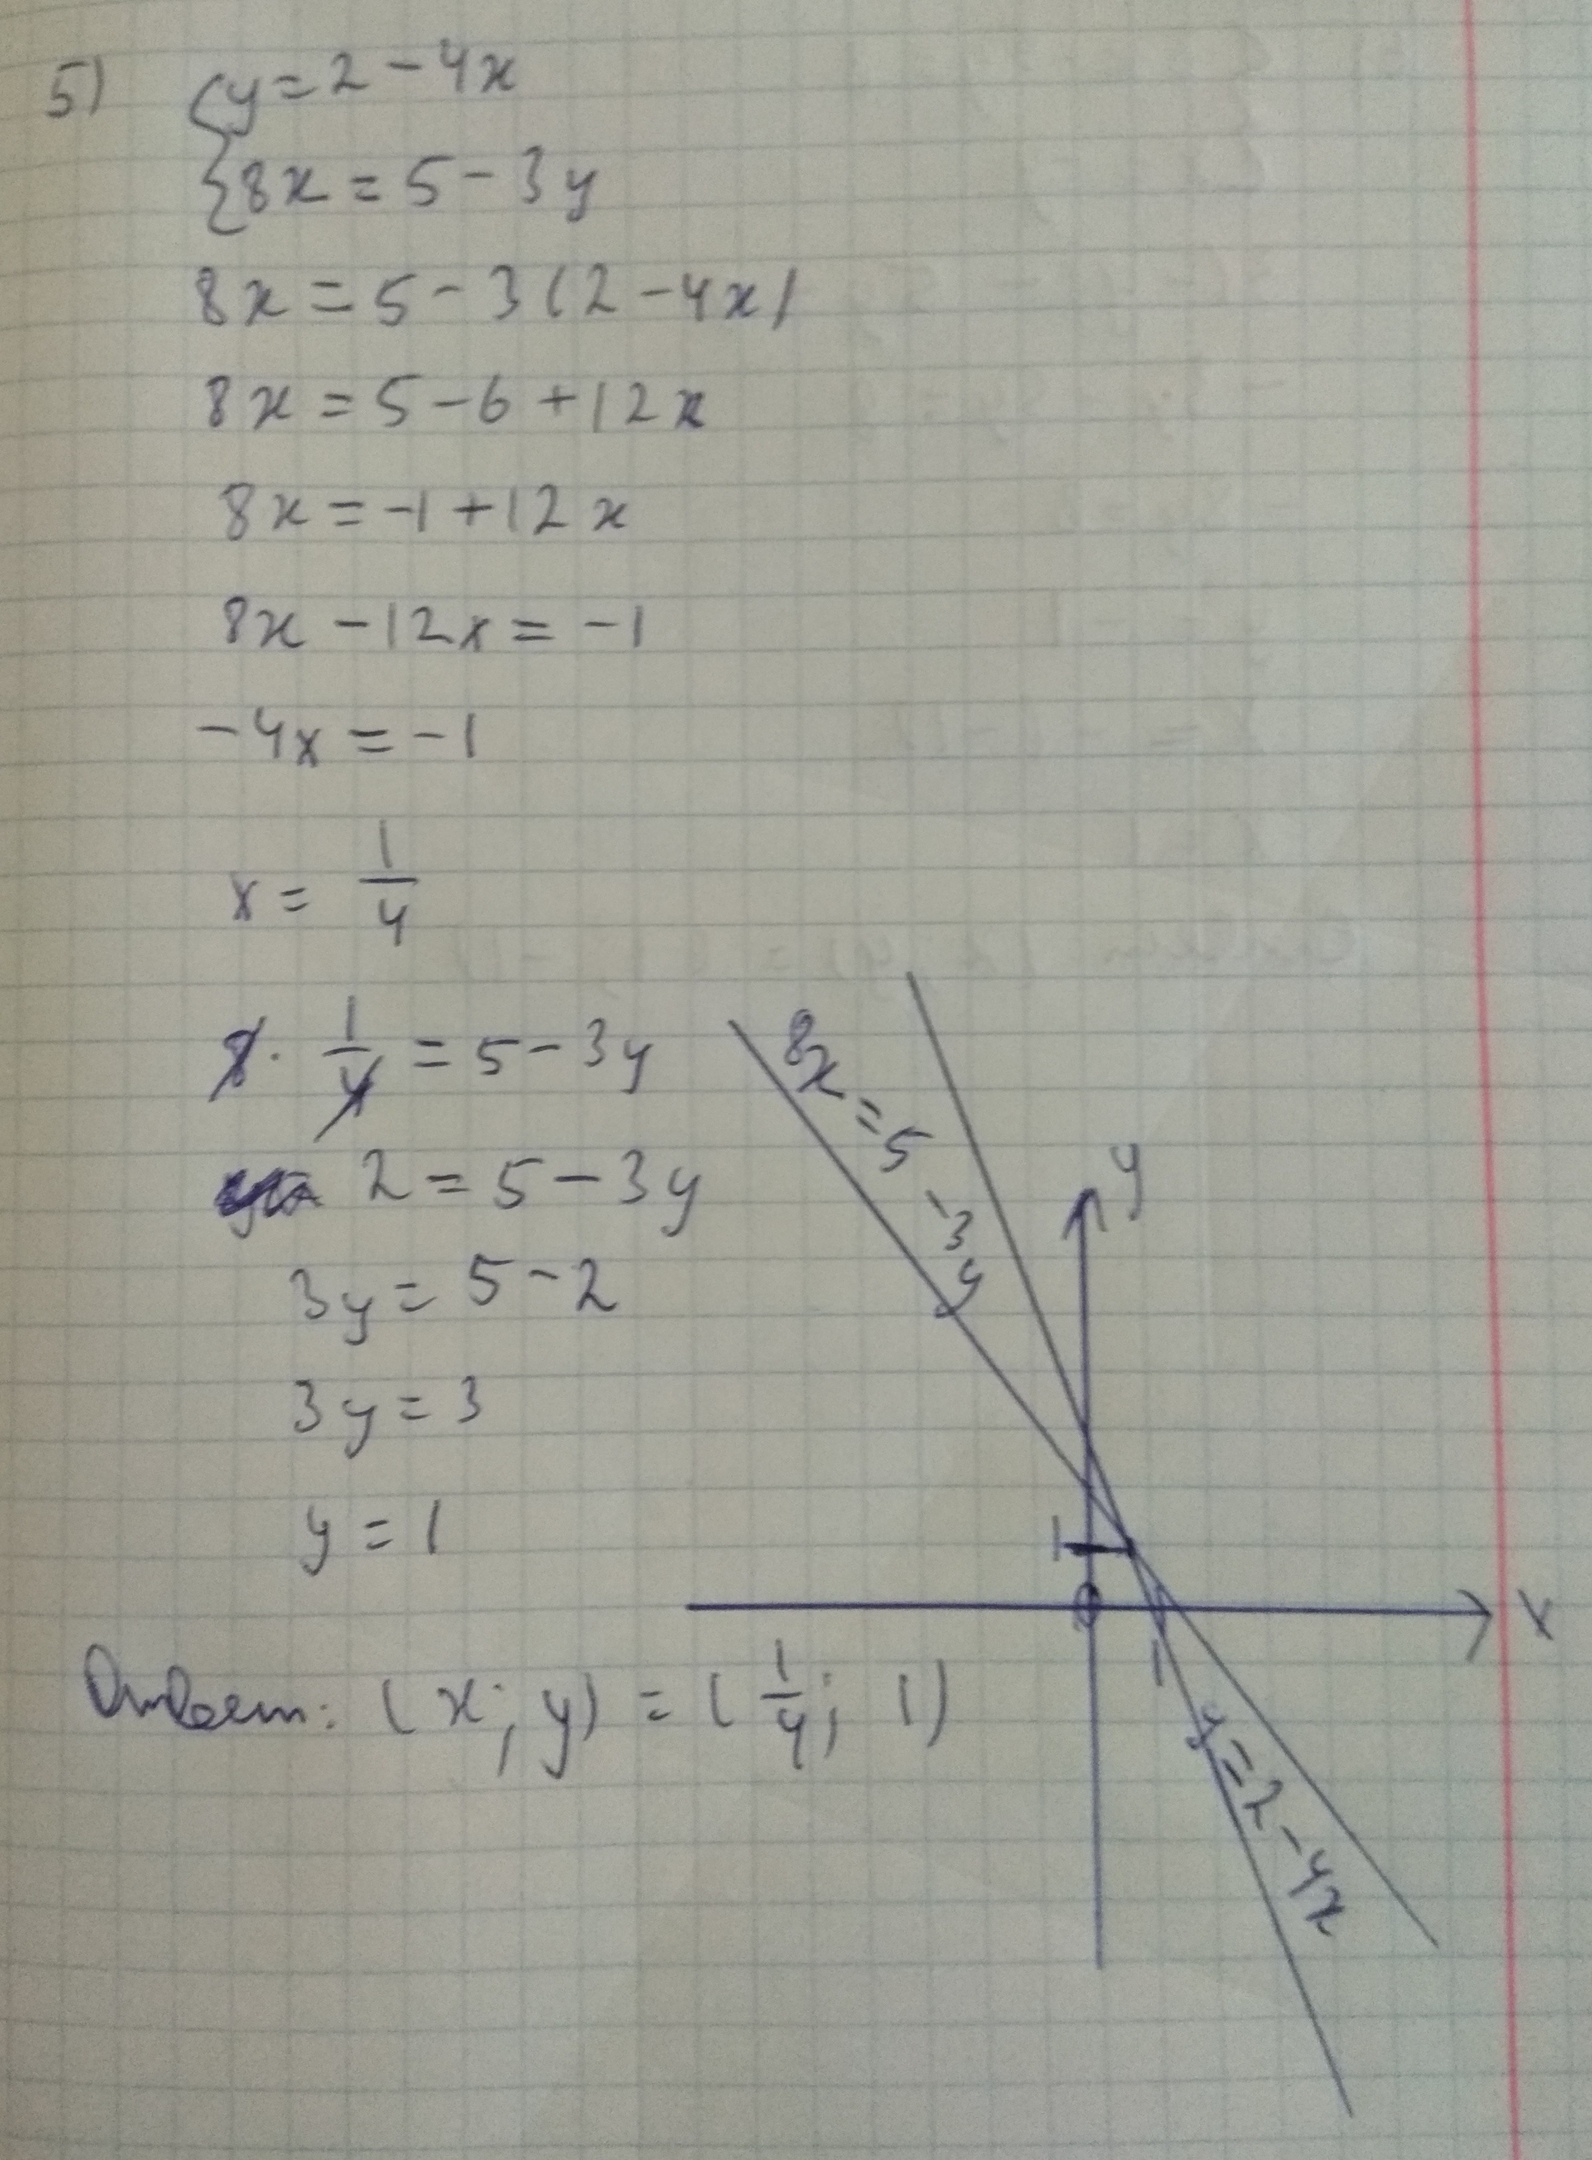 5) { y = 2 - 4x
{ 8x = 5 - 3y
8x = 5 - 3(2 - 4x)
8x = 5 - 6 + 12x
8x = -1 + 12x
8x - 12x = -1
-4x = -1
x = 1/4
8 · 1/4 = 5 - 3y
2 = 5 - 3y
3y = 5 - 2
3y = 3
y = 1
Ответ: (x; y) = (1/4; 1)
8x = 5 - 3y
y
1
0
1
x
y = 2 - 4x